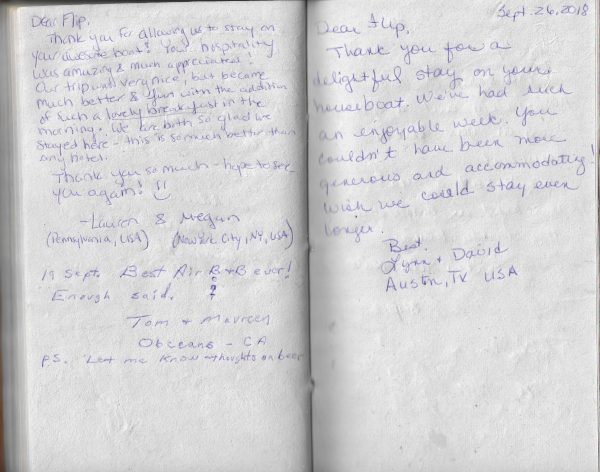 Dear Flip,
Thank you for allowing us to stay on
your awesome boat! Your hospitality
was amazing & much appreciated!
Our trip was very nice, but became
much better & fun with the addition
of such a lovely breakfast in the
morning. We are both so glad we
stayed here - this is so much better than
any hotel.
Thank you so much - hope to see
you again!
-Lauren & Megan
(Pennsylvania, USA) (New York City, NY, USA)
19 Sept. Best Air B+B ever!
Enough said.
Tom + Maureen
- CA
P.S. Let me know thoughts on beer
Sept. 26, 2018
Dear Flip,
Thank you for a
delightful stay on your
houseboat. We've had such
an enjoyable week. You
couldn't have been more
generous and accommodating!
Wish we could stay even
longer.
Best,
Lynn + David
Austin, TX USA